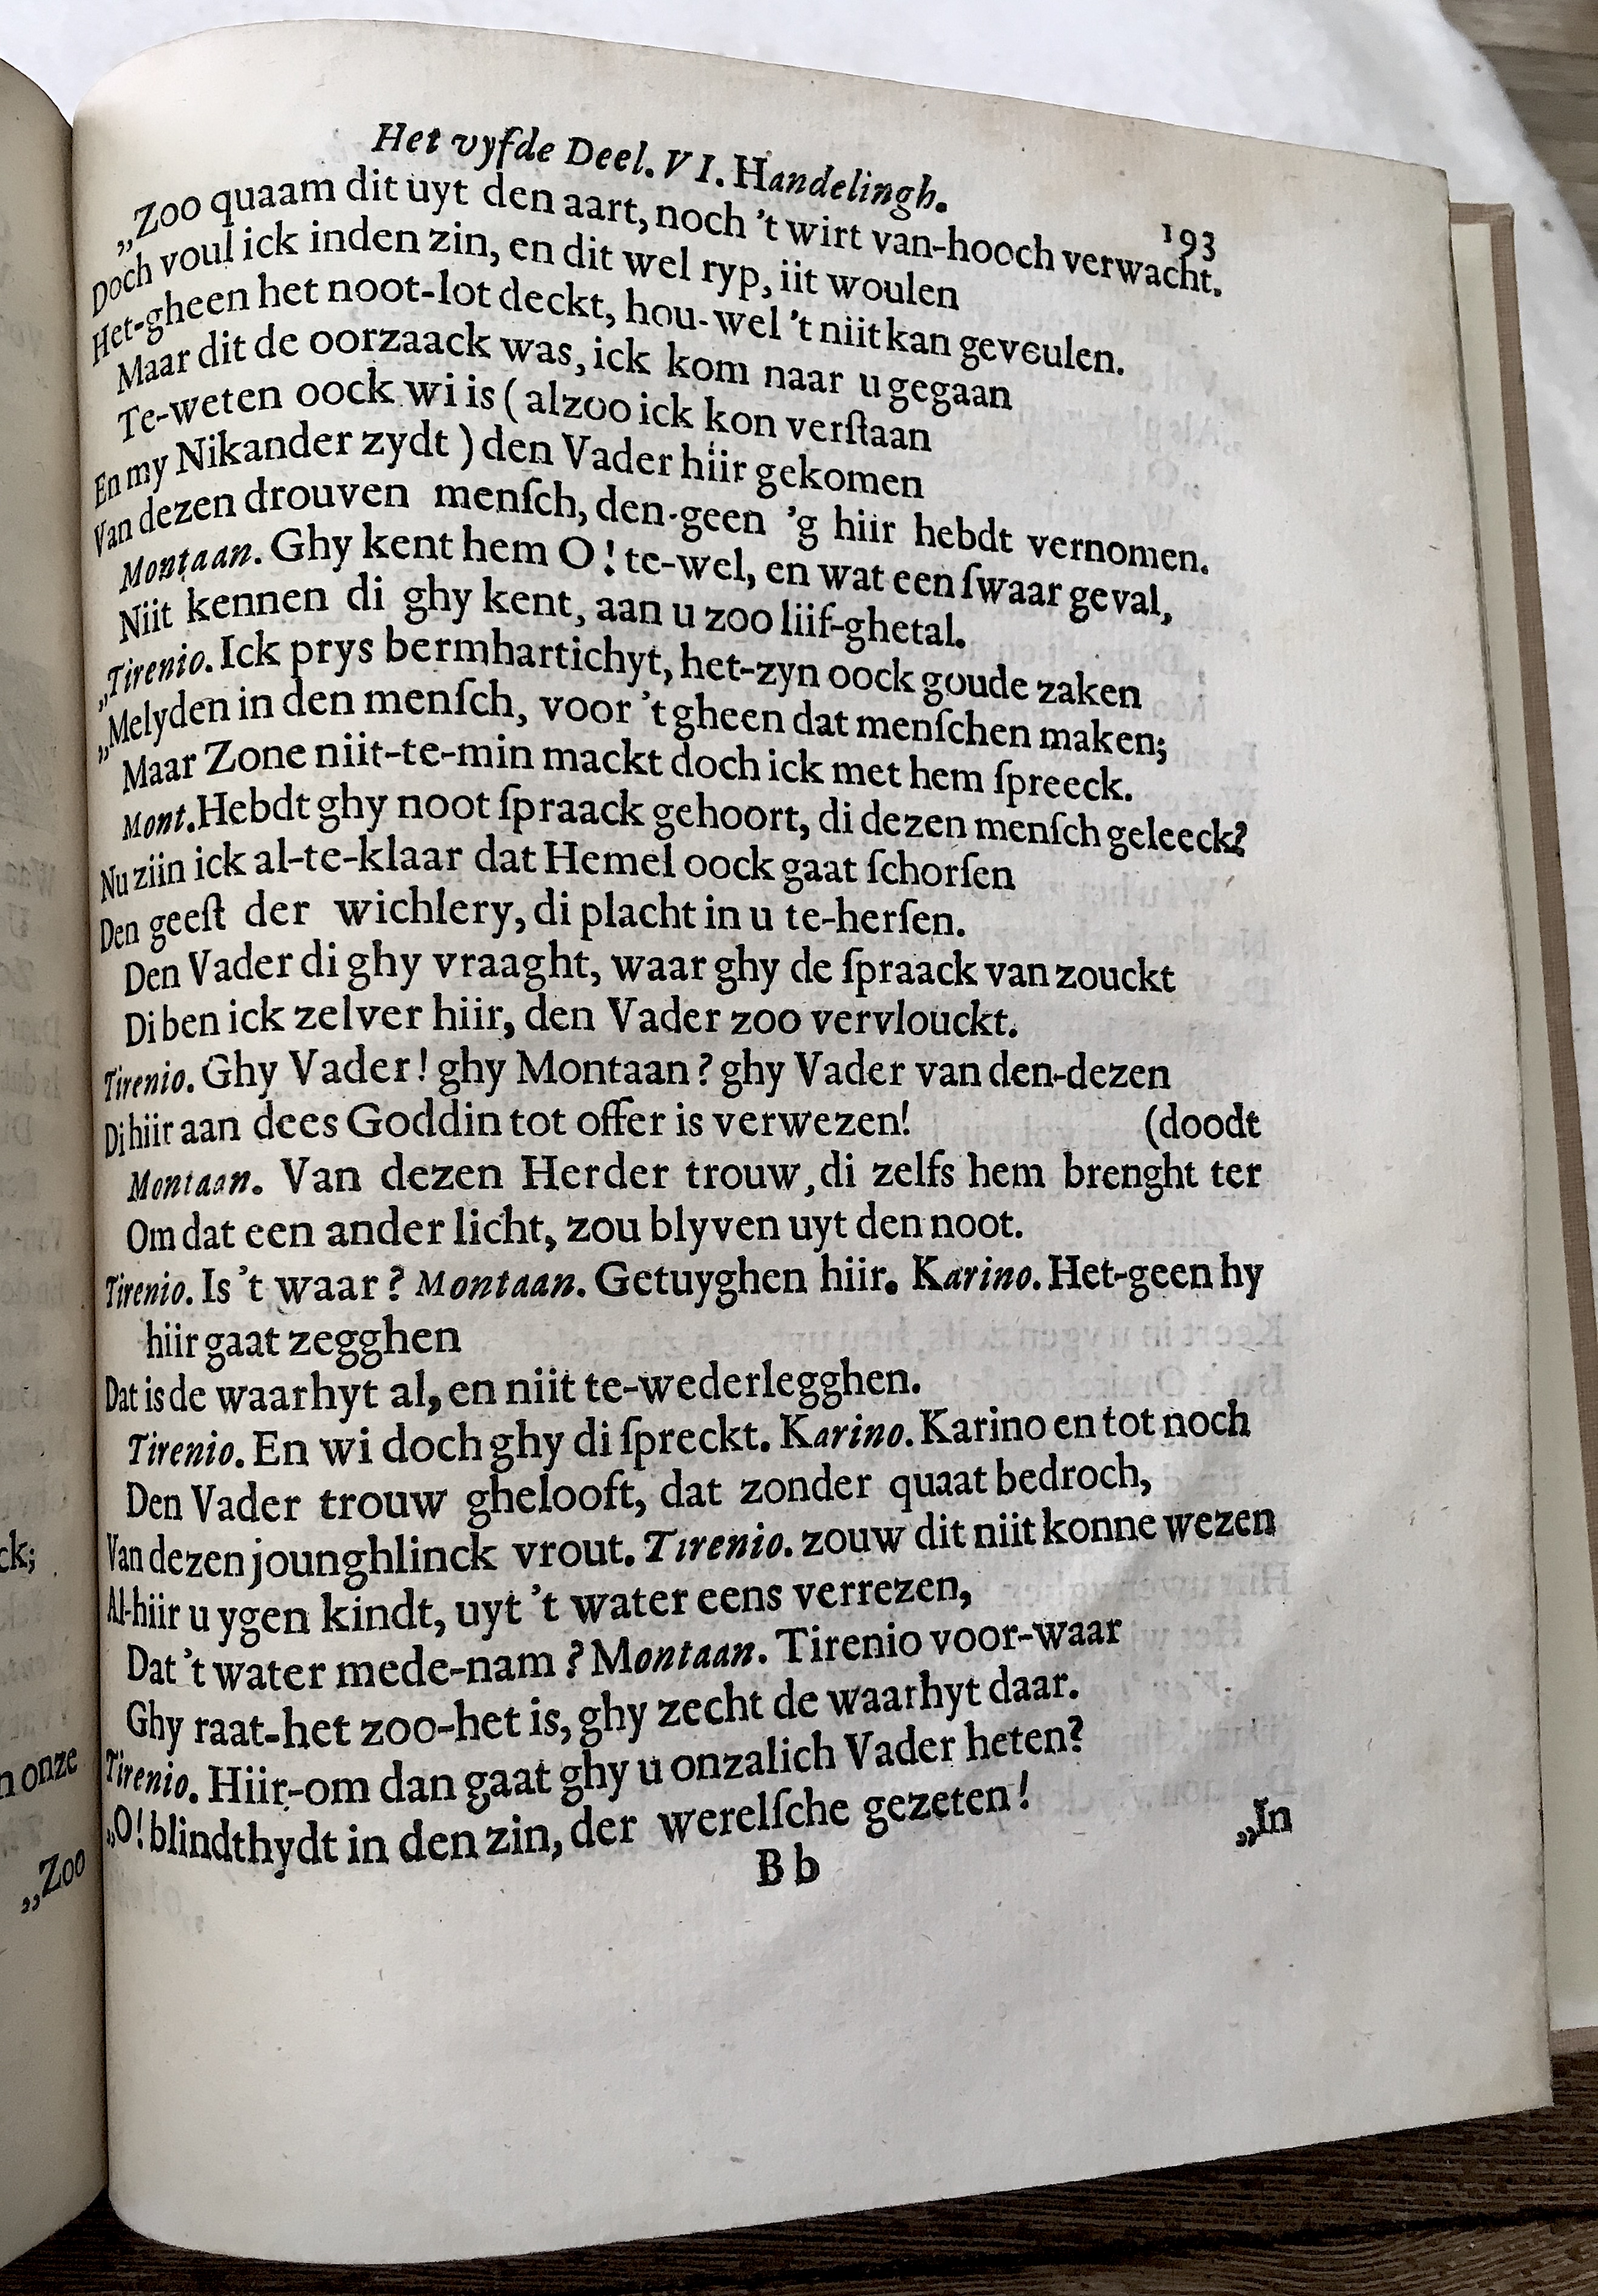 Het vyfde Deel. VI. Handelingh.
193
„Zoo quaam dit uyt den aart, noch 't wirt van-hooch verwacht.
Doch voul ick inden zin, en dit wel ryp, iit woulen
Het-gheen het noot-lot deckt, hou-wel 't niit kan geveulen.
Maar dit de oorzaack was, ick kom naar u gegaan
Te-weten oock wi is ( alzoo ick kon verſtaan
En my Nikander zydt ) den Vader hiir gekomen
Van dezen drouven menſch, den-geen 'g hiir hebdt vernomen.
Montaan. Ghy kent hem O! te-wel, en wat een ſwaar geval,
Niit kennen di ghy kent, aan u zoo liif-ghetal.
„Tirenio. Ick prys bermhartichyt, het-zyn oock goude zaken
„Melyden in den menſch, voor 't gheen dat menſchen maken;
Maar Zone niit-te-min mackt doch ick met hem ſpreeck.
Mont. Hebdt ghy noot ſpraack gehoort, di dezen menſch geleeck?
Nu ziin ick al-te-klaar dat Hemel oock gaat ſchorſen
Den geeſt der wichlery, di placht in u te-herſen.
Den Vader di ghy vraaght, waar ghy de ſpraack van zouckt
Di ben ick zelver hiir, den Vader zoo vervlouckt.
Tirenio. Ghy Vader! ghy Montaan? ghy Vader van den-dezen
Di hiir aan dees Goddin tot offer is verwezen!
(doodt
Montaan. Van dezen Herder trouw, di zelfs hem brenght ter
Om dat een ander licht, zou blyven uyt den noot.
Tirenio. Is 't waar? Montaan. Getuyghen hiir. Karino. Het-geen hy
hiir gaat zegghen
Dat is de waarhyt al, en niit te-wederlegghen.
Tirenio. En wi doch ghy di ſpreckt. Karino. Karino en tot noch
Den Vader trouw ghelooft, dat zonder quaat bedroch,
Van dezen jounghlinck vrout. Tirenio. zouw dit niit konne wezen
Al-hiir u ygen kindt, uyt 't water eens verrezen,
Dat 't water mede-nam? Montaan. Tirenio voor-waar
Ghy raat-het zoo-het is, ghy zecht de waarhyt daar.
Tirenio. Hiir-om dan gaat ghy u onzalich Vader heten?
„O! blindthydt in den zin, der werelſche gezeten!
B b
„In
ck;
n onze
„Zoo